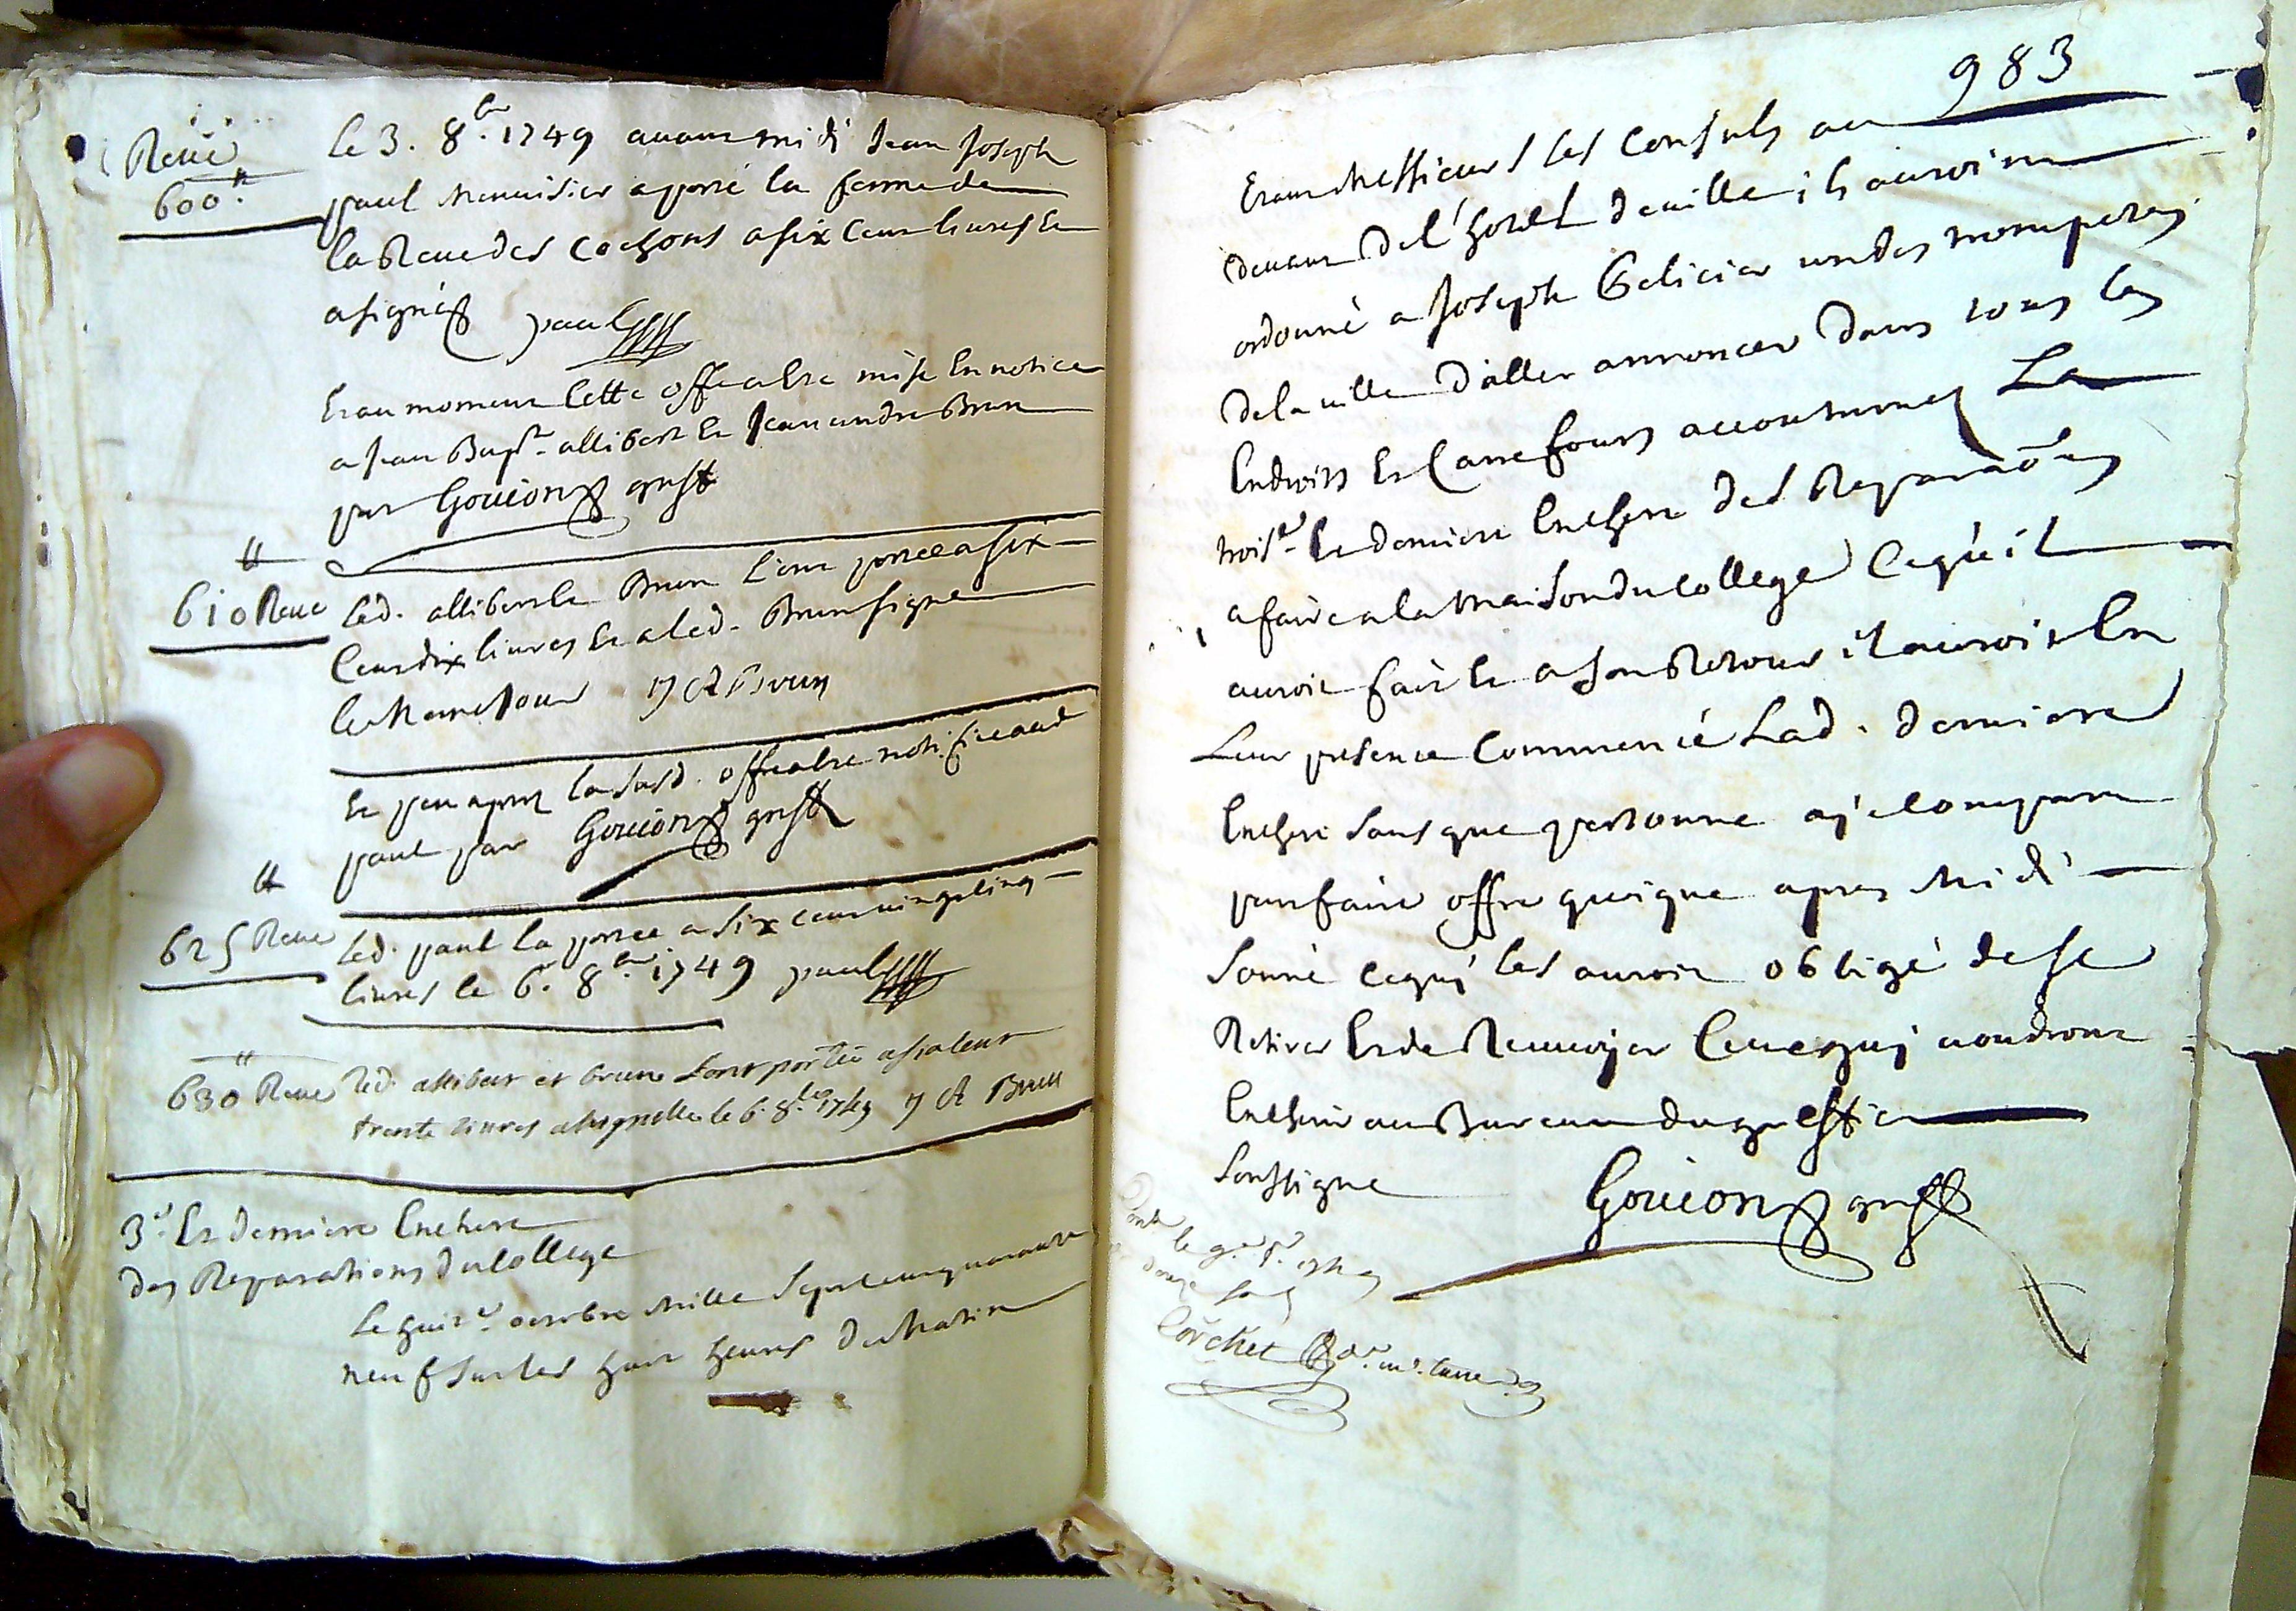 Reve
600"
le 3. 8bre 1749 avant midi Jean Joseph
paul menuisier a porté la ferme de
la Reve des cochons a six cent livres et
a signé paul
Et au moment cette offre a été mise en notice
a Jean Bapt. allibert et Jean andre Brun
par Gouion greff
"
610 Reve
led. allibert et Brun l'ont portée a six
cent dix livres et a led. Brun signé
le meme jour J A Brun
Et peu apres la susd. offre a été notifiée aud
paul par Gouion greff
"
625 Reve
led. paul la portée a six cent vingt cinq
livres le 6. 8bre 1749 paul
"
630 Reve
led. allibert et brun l'ont portée a six cent
trente livres a signé led le 6. 8bre 1749 J A Brun
3e Et derniere Enchere
des Reparations du College
Le huite octobre mille sept cent quarante
neuf sur les huit heures du matin
983
Etant messieurs les consuls au
devant de l'hotel de ville ils auroint
ordonné a Joseph Gelicier un des trompetes
de la ville d'aller annoncer dans tous les
Endroits et Carrefours accoutumes La
troise Et derniere Enchere des Reparaõns
a faire a la maison du College Ce qu'il
auroit fait Et a son Retour il auroit En
Leur presence Commencé Lad. derniere
Enchere sans que personne aye comparu
pour faire offre quoique apres midi
sonné ce qui les auroit obligé de se
Retirer Et de Renvoyer Ceux qui voudront
Encherir au Bureau du greffier
soussigne
Gouion greff
le 9e 1749
douze sols
Corchet